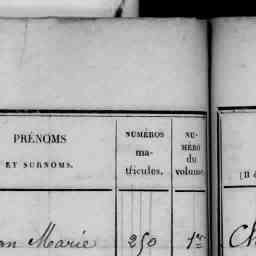 PRÉNOMS
ET SURNOMS.
NUMÉROS
ma-
tricules.
NU-
MÉRO
du
volume
Marie 250 1er